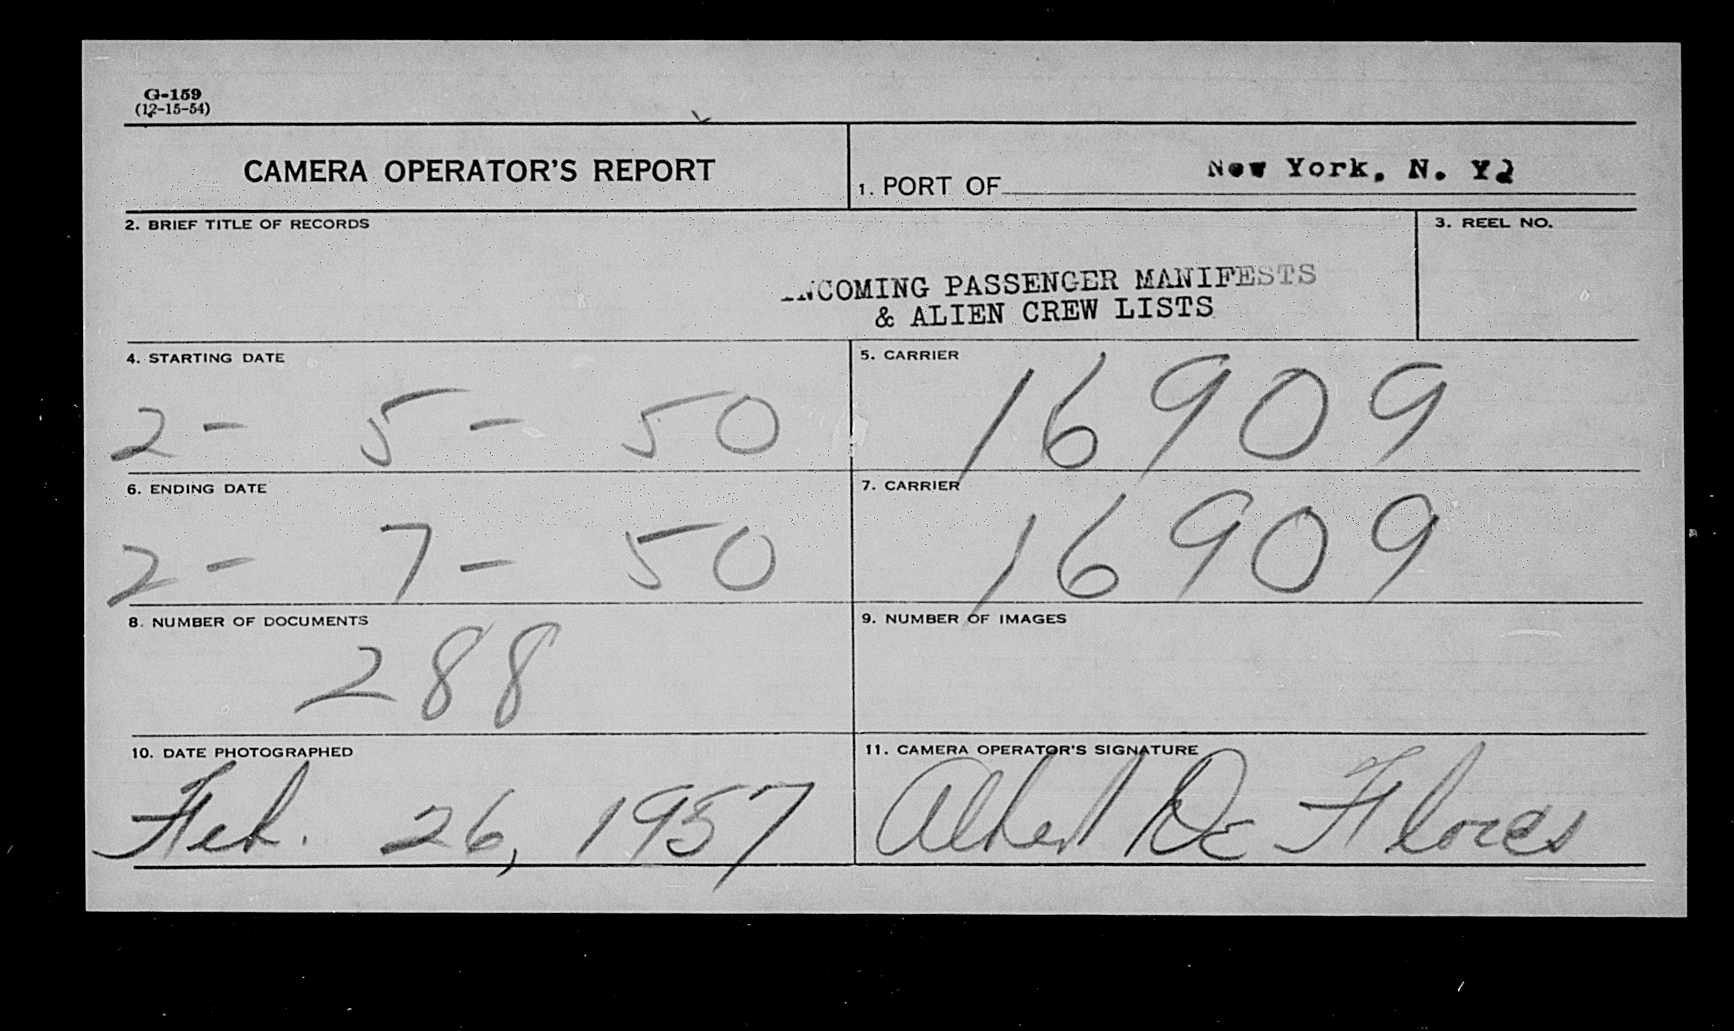 G-159
(12-15-54)
CAMERA OPERATOR'S REPORT
1. PORT OF New York, N. Y.
2. BRIEF TITLE OF RECORDS
INCOMING PASSENGER MANIFESTS
& ALIEN CREW LISTS
3. REEL NO.
4. STARTING DATE
2- 5- 50
5. CARRIER
16909
6. ENDING DATE
2- 7- 50
7. CARRIER
16909
8. NUMBER OF DOCUMENTS
288
9. NUMBER OF IMAGES
10. DATE PHOTOGRAPHED
Feb. 26, 1957
11. CAMERA OPERATOR'S SIGNATURE
Albert De Flores